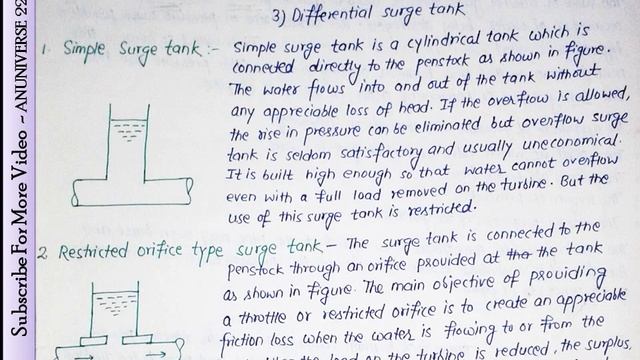 Subscribe For More Video ~ ANUNIVERSE 22
3) Differential surge tank
1. Simple Surge tank :- Simple surge tank is a cylindrical tank which is
connected directly to the penstock as shown in figure.
The water flows into and out of the tank without
any appreciable loss of head. If the overflow is allowed,
the rise in pressure can be eliminated but overflow surge
tank is seldom satisfactory and usually uneconomical.
It is built high enough so that water cannot overflow
even with a full load removed on the turbine. But the
use of this surge tank is restricted.
2 Restricted orifice type surge tank - The surge tank is connected to the
penstock through an orifice provided at the the tank
as shown in figure. The main objective of providing
a throttle or restricted orifice is to create an appreciable
friction loss when the water is flowing to or from the
the load on the turbine is reduced, the surplus,